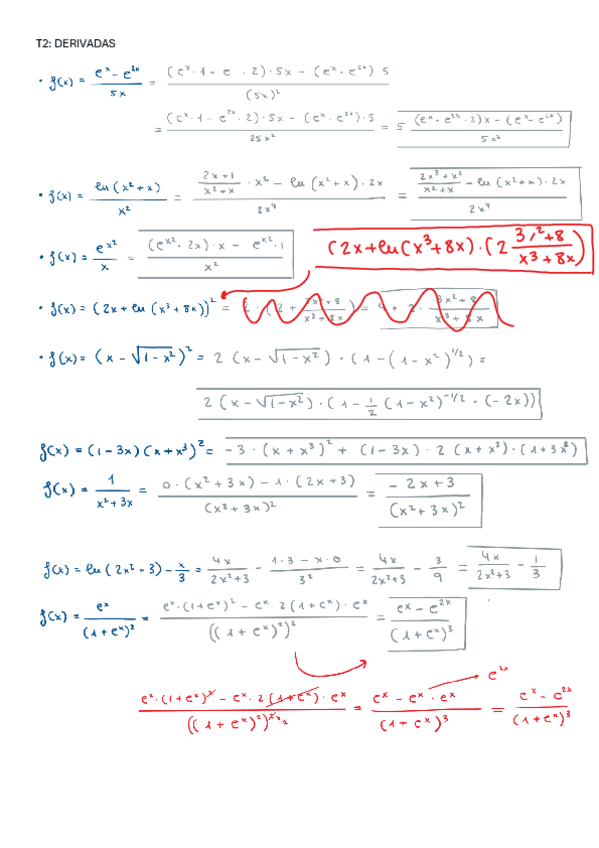 T2: DERIVADAS
• f(x) = (e^x - e^2x) / 5x = ((e^x · 1 - e · 2) · 5x - (e^x - e^2x) 5) / (5x)²
= ((e^x · 1 - e^2x · 2) · 5x - (e^x - e^2x) · 5) / 25x² = 5 ((e^x - e^2x · 2)x - (e^x - e^2x)) / 5x²
• f(x) = ln(x²+x) / x² = ((2x+1)/(x²+x) · x² - ln(x²+x) · 2x) / 2x⁴ = ((2x³+x²)/(x²+x) - ln(x²+x) · 2x) / 2x⁴
• f(x) = e^x² / x = ((e^x² · 2x) · x - e^x² · 1) / x²
(2x+ln(x³+8x)) · (2 (3x²+8)/(x³+8x))
• f(x) = (2x + ln(x³+8x))² = 2 · (2 + (3x²+8)/(x³+8x)) = 4 + 2 · (3x²+8)/(x³+8x)
• f(x) = (x - √(1-x²))² = 2 (x - √(1-x²)) · (1 - (1-x²)^1/2) =
2 (x - √(1-x²)) · (1 - 1/2 (1-x²)^-1/2 · (-2x))
f(x) = (1-3x)(x+x³)² = -3 · (x+x³)² + (1-3x) · 2 (x+x³) · (1+3x²)
f(x) = 1 / (x²+3x) = (0 · (x²+3x) - 1 · (2x+3)) / (x²+3x)² = (-2x+3) / (x²+3x)²
f(x) = ln(2x²-3) - x/3 = 4x/(2x²+3) - (1·3 - x·0)/3² = 4x/(2x²+3) - 3/9 = 4x/(2x²+3) - 1/3
f(x) = e^x / (1+e^x)² = (e^x · (1+e^x)² - e^x · 2(1+e^x) · e^x) / ((1+e^x)²)² = (e^x - e^2x) / (1+e^x)³
e^2x
(e^x · (1+e^x)² - e^x · 2(1+e^x) · e^x) / ((1+e^x)²)² = (e^x - e^x · e^x) / (1-e^x)³ = (e^x - e^2x) / (1+e^x)³